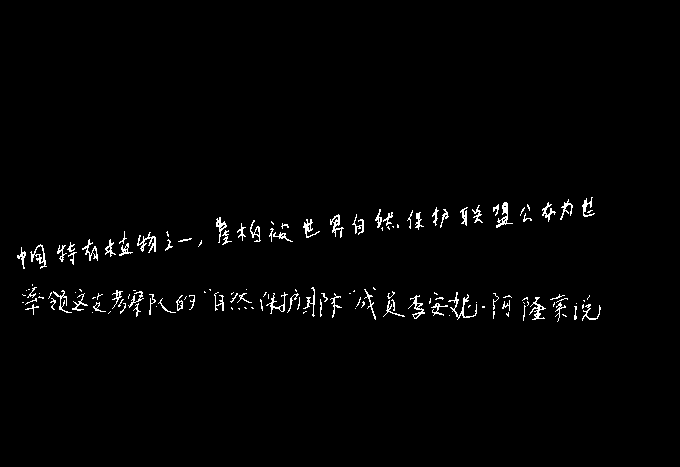 中国特有植物之一，崖柏被世界自然保护联盟公布为世
率领这支考察队的“自然保护国际”成员李安妮·阿隆索说